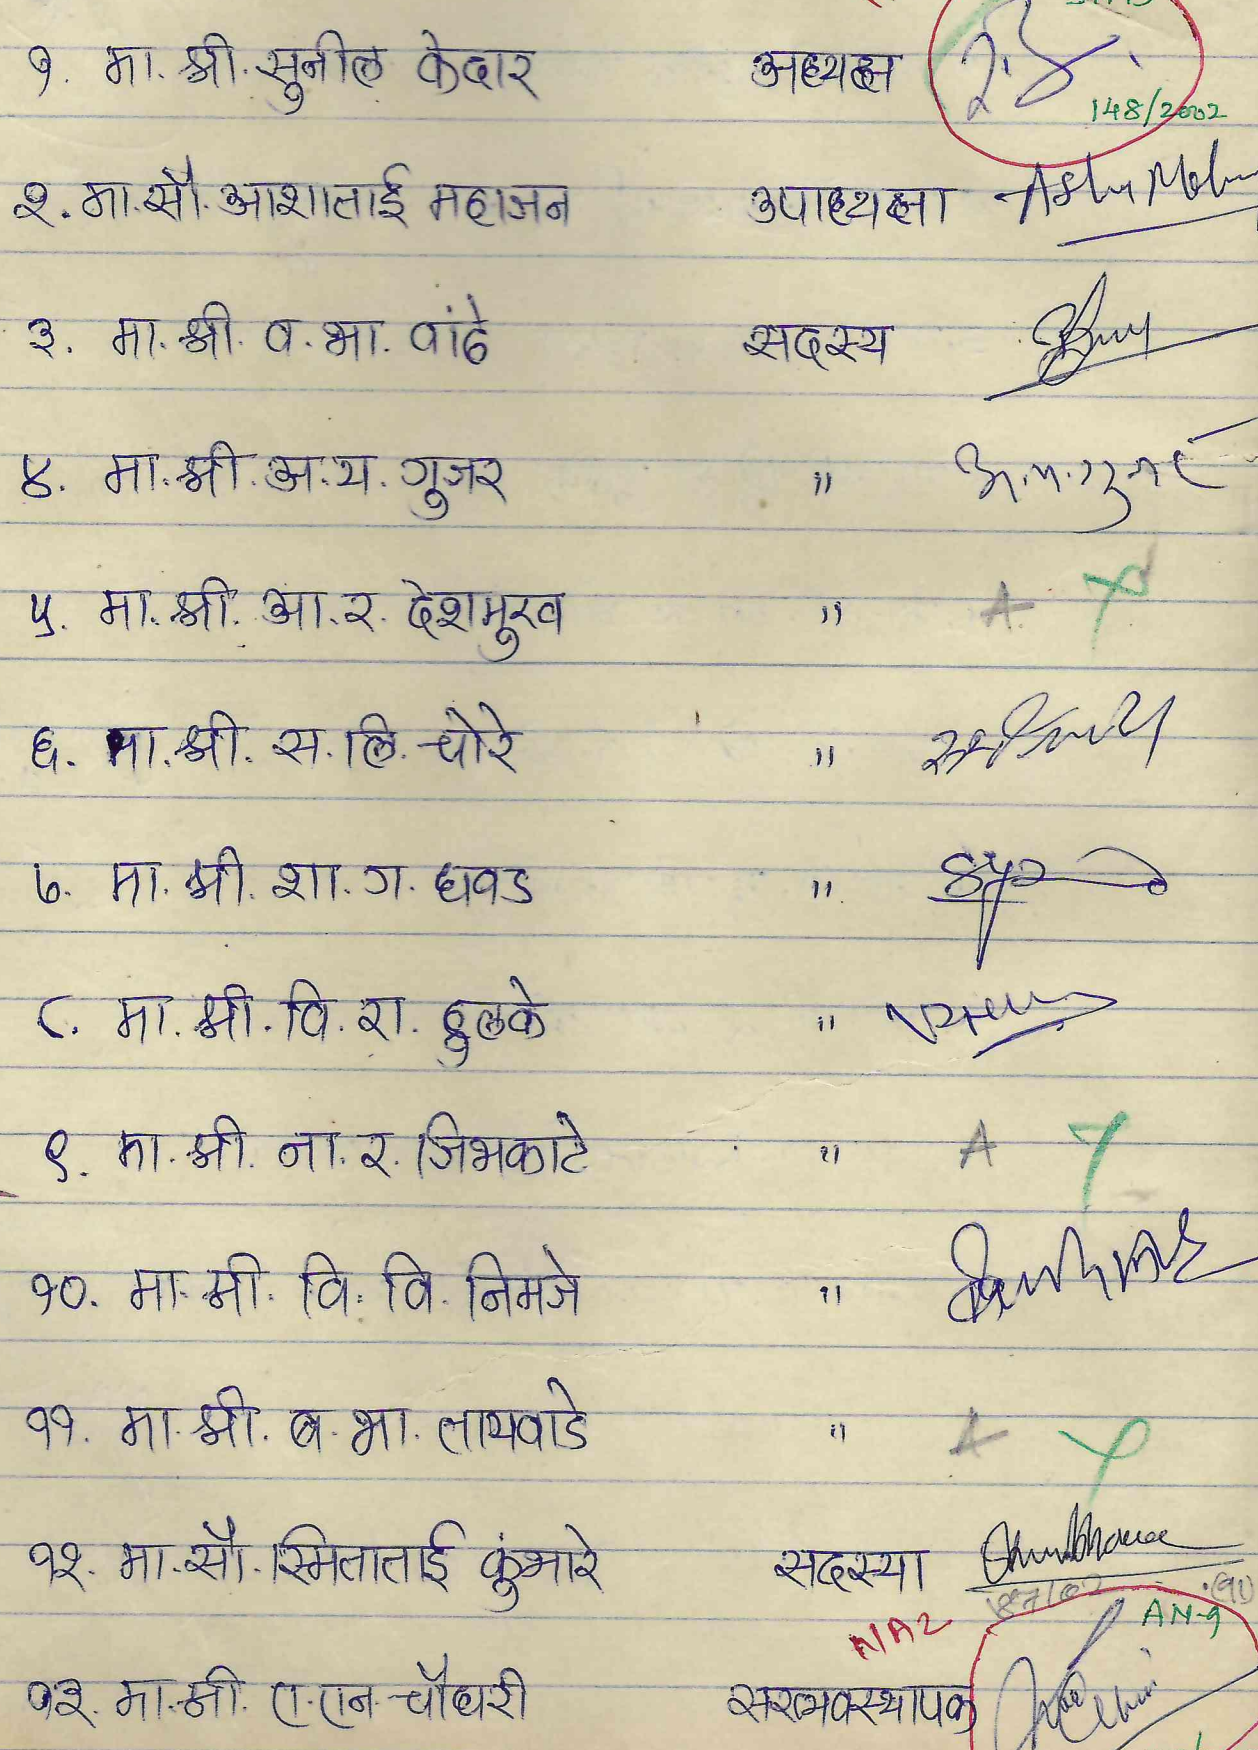 १. मा. श्री. सुनील केदार अध्यक्ष
148/2002
२. मा. सौ. आशाताई महाजन उपाध्यक्षा
३. मा. श्री. व. भा. वांढे सदस्य
४. मा. श्री. अ. य. गुजर " अ. य. गुजर
५. मा. श्री. आ. र. देशमुख " A
६. मा. श्री. स. लि. चोरे "
७. मा. श्री. शा. ग. धवड "
८. मा. श्री. वि. रा. ढुलके "
९. मा. श्री. ना. र. जिभकाटे " A
१०. मा. श्री. वि. वि. निमजे "
११. मा. श्री. ब. भा. लायवाडे " A
१२. मा. सौ. स्मिताताई कुंभारे सदस्या
A/A2 AN-9
१३. मा. श्री. ए. एन. चौधरी सरव्यवस्थापक